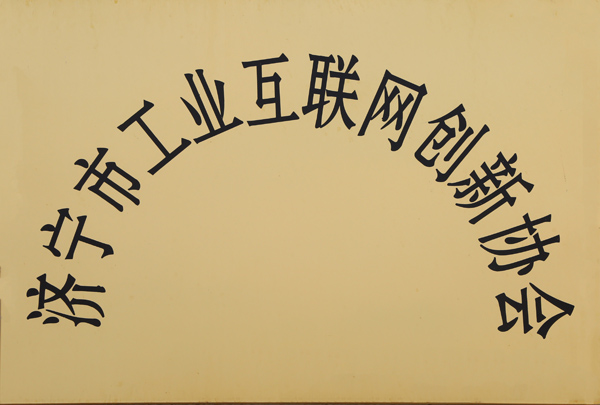 济宁市工业互联网创新协会